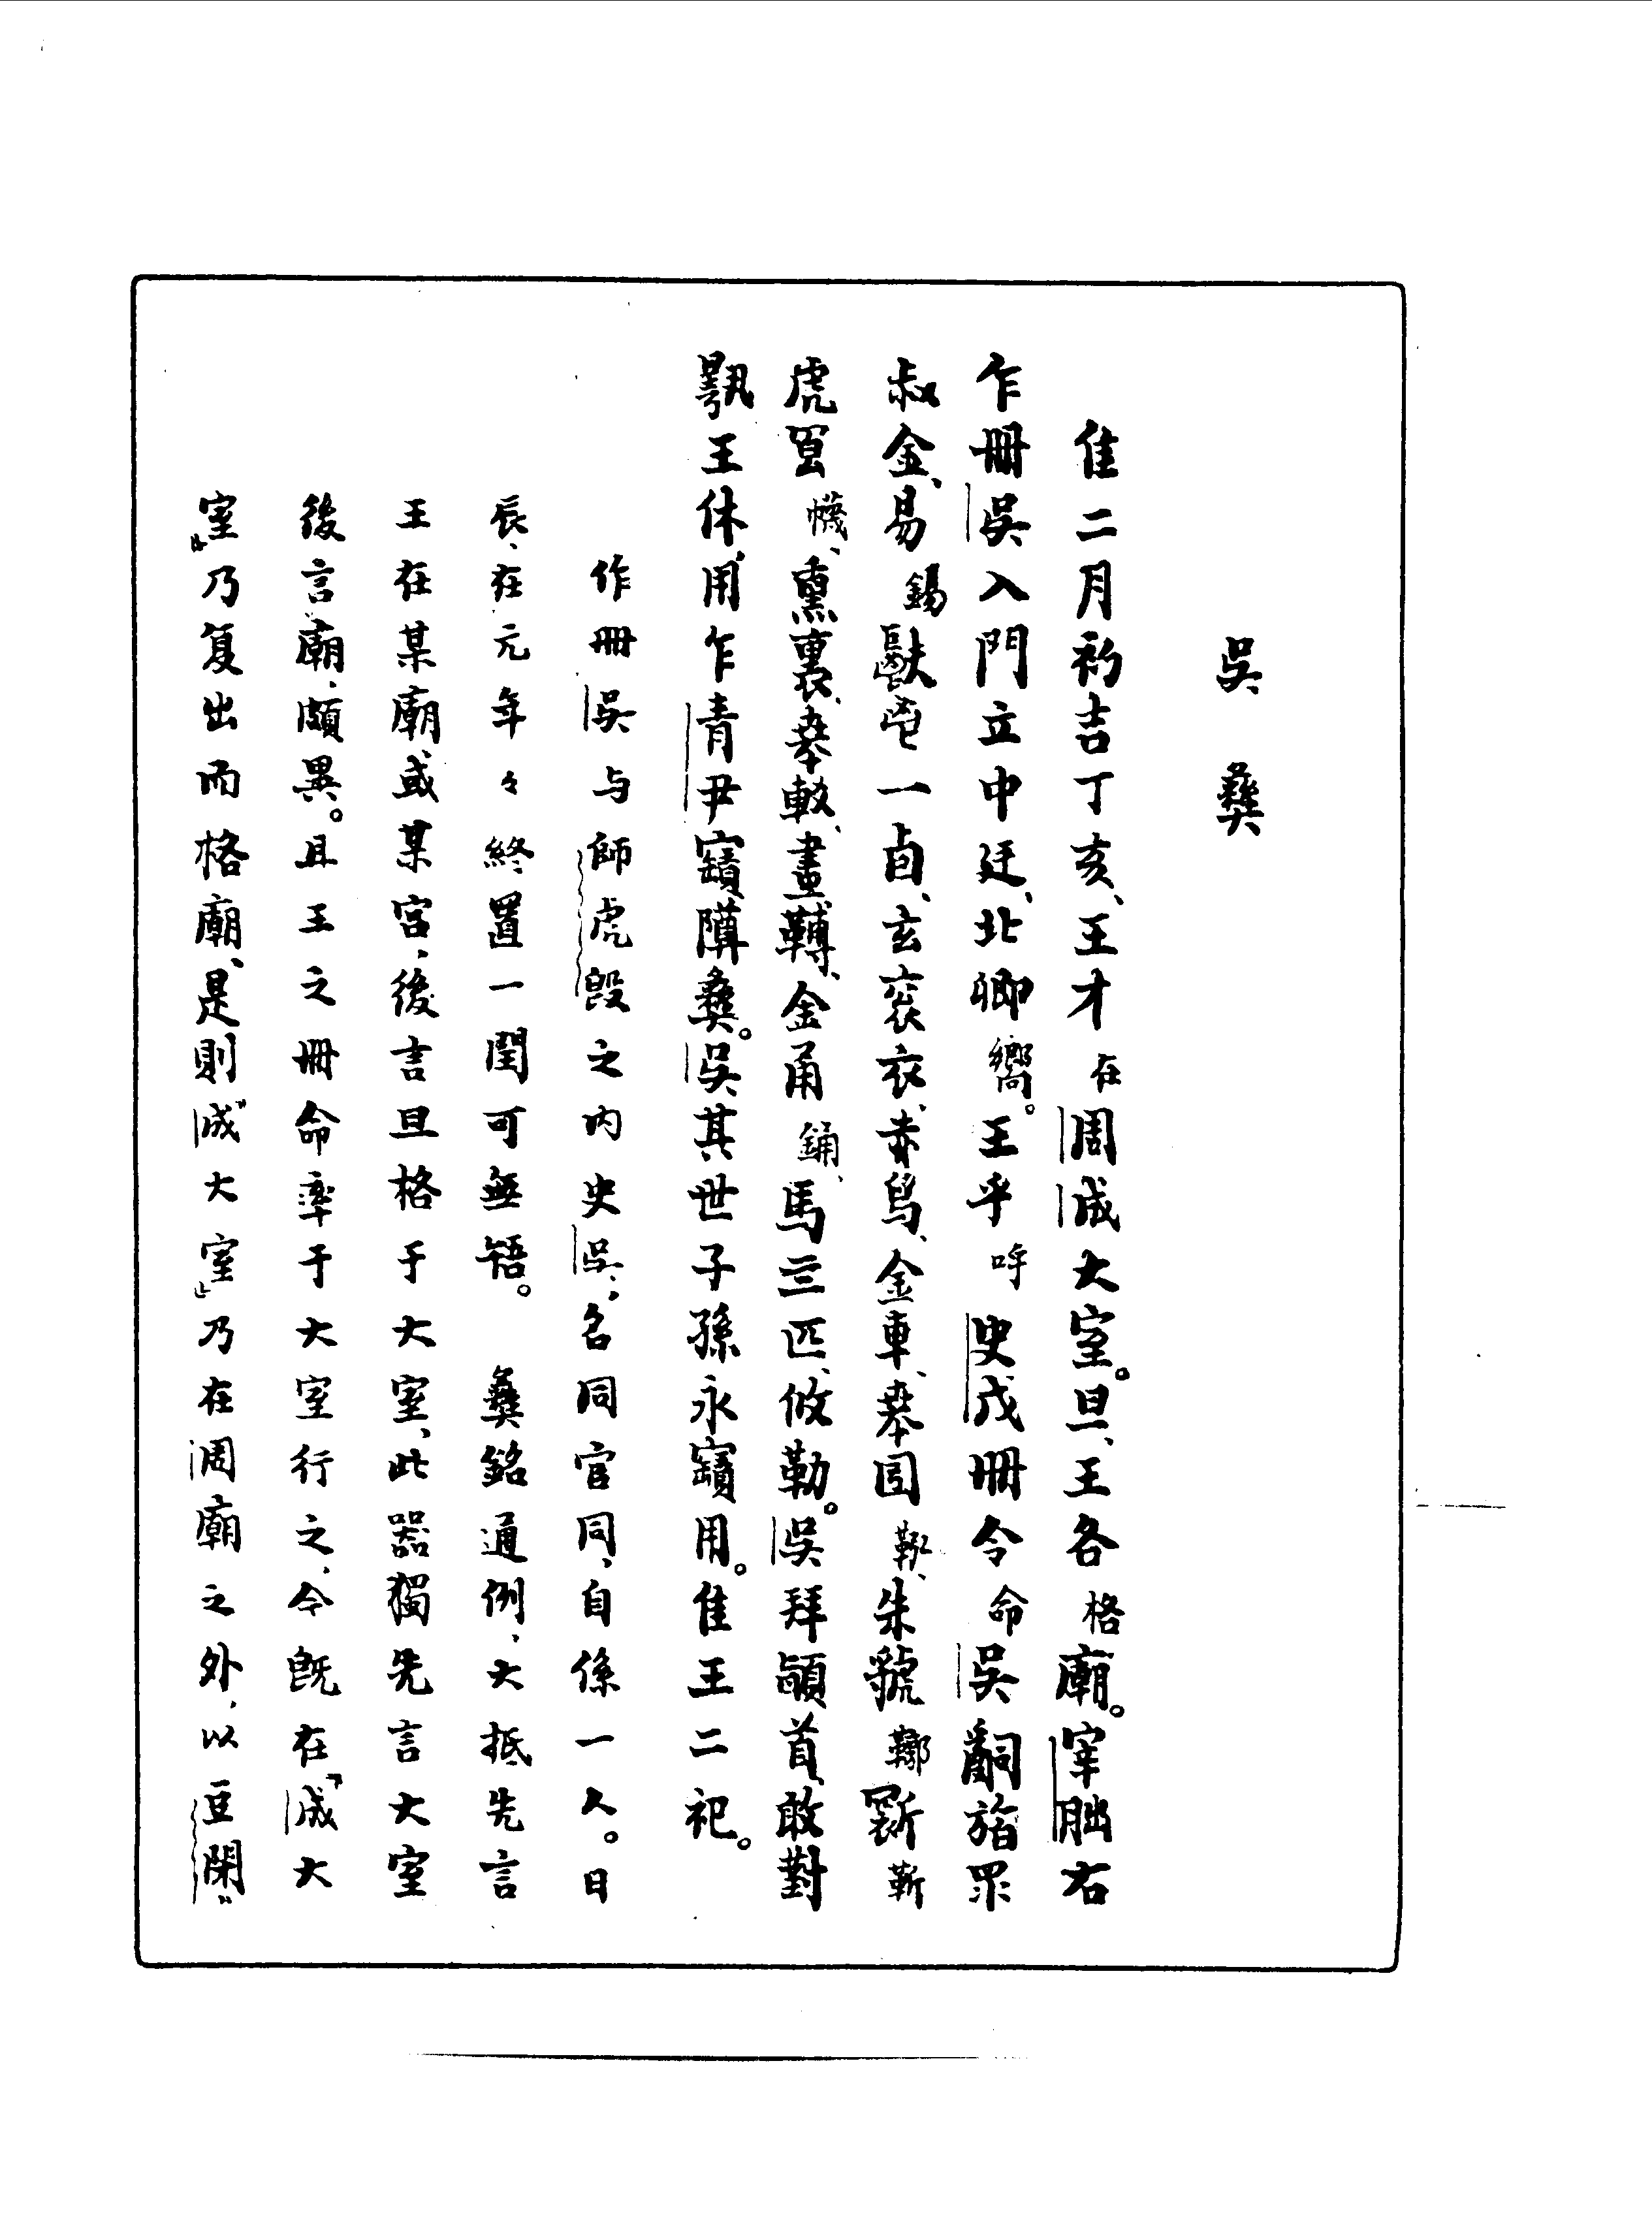 吳彝
隹二月初吉丁亥、王才在周成大室。旦、王各格廟。宰朏右
乍冊吳入門立中廷、北卿嚮。王乎呼史戊冊令命吳𤔲旓眔
叔金、易錫鬯一卣、玄袞衣、赤舄、金車、𠦪㘝䩑、朱虢鞹㡒靳
虎冟幭、熏裏、𠦪較、畫轉、金甬鋪、馬亖匹、攸勒。吳拜䭫首、敢對
𩁹王休、用乍青尹寶𨽋彝。吳其世子孫永寶用。隹王二祀。
作冊吳与師虎𣪘之內史吳、名同官同、自係一人。日
辰、在元年々終置一閏可無啎。彝銘通例、大抵先言
王在某廟或某宮、後言旦格于大室、此器獨先言大室
後言廟、頗異。且王之冊命率于大室行之、今既在「成大
室」乃复出而格廟、是則「成大室」乃在周廟之外、以豆閉